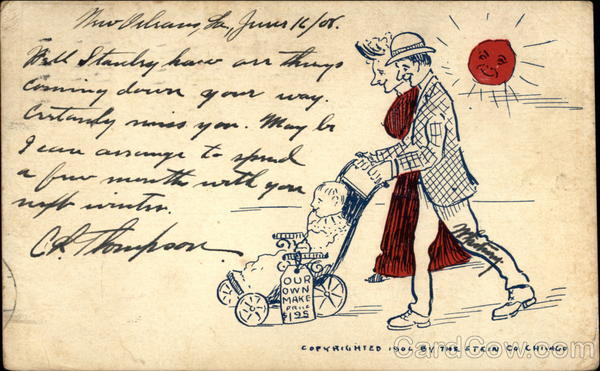 New Orleans, La, June 16/08.
Well Stanley how are things
coming down your way.
Certanly miss you. May be
I can arrange to spend
a few months with you
next winter.
C R Thompson.
OUR
OWN
MAKE
PRICE
$1.95
COPYRIGHTED 1906 BY THE STEIN CO. CHICAGO
CardCow.com